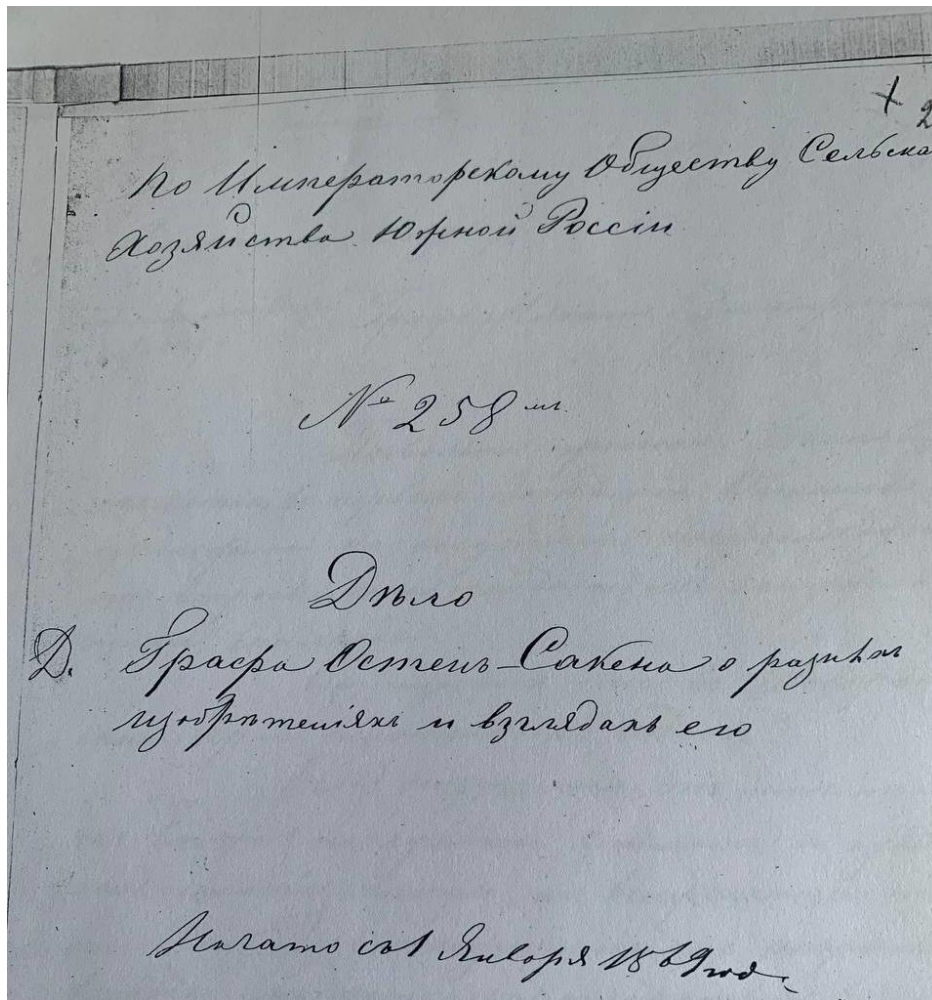 + 2
По Императорскому Обществу Сельска
Хозяйства Южной Россіи
№ 258
Дѣло
Д. Графа Остенъ-Сакена о разныхъ
изобрѣтеніяхъ и взглядахъ его
Начато съ 1 Января 1869 года